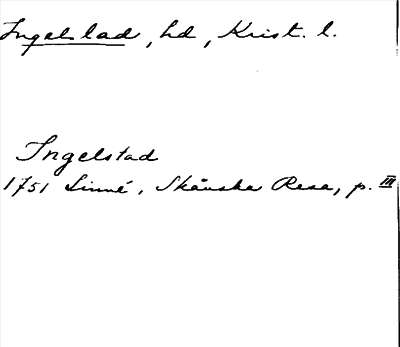 Ingelstad, hd, Krist. l.
Ingelstad
1751 Linné, Skånska Resa, p. III